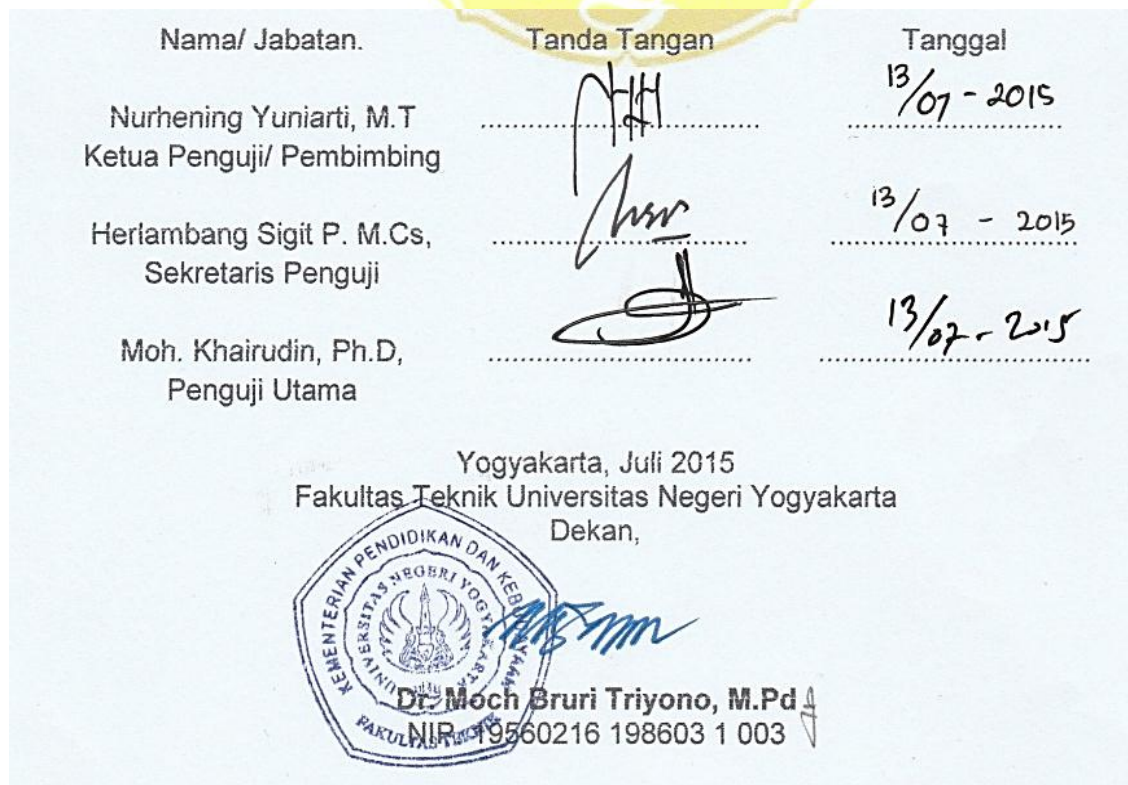 Nama/ Jabatan. Tanda Tangan Tanggal
Nurhening Yuniarti, M.T ........................................ 13/07 - 2015
Ketua Penguji/ Pembimbing
Herlambang Sigit P. M.Cs, ..................................... 13/07 - 2015
Sekretaris Penguji
Moh. Khairudin, Ph.D, ...................................... 13/07 - 2015
Penguji Utama
Yogyakarta, Juli 2015
Fakultas Teknik Universitas Negeri Yogyakarta
Dekan,
KEMENTERIAN PENDIDIKAN DAN
UNIVERSITAS NEGERI YOGYAKARTA
FAKULTAS TEKNIK
Dr. Moch Bruri Triyono, M.Pd
NIP. 19560216 198603 1 003